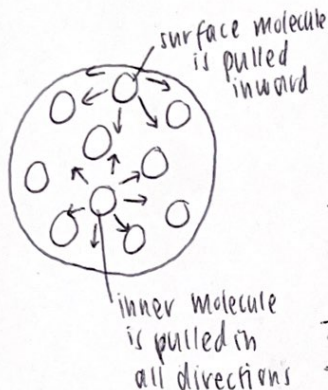 surface molecule
is pulled
inward
inner molecule
is pulled in
all directions